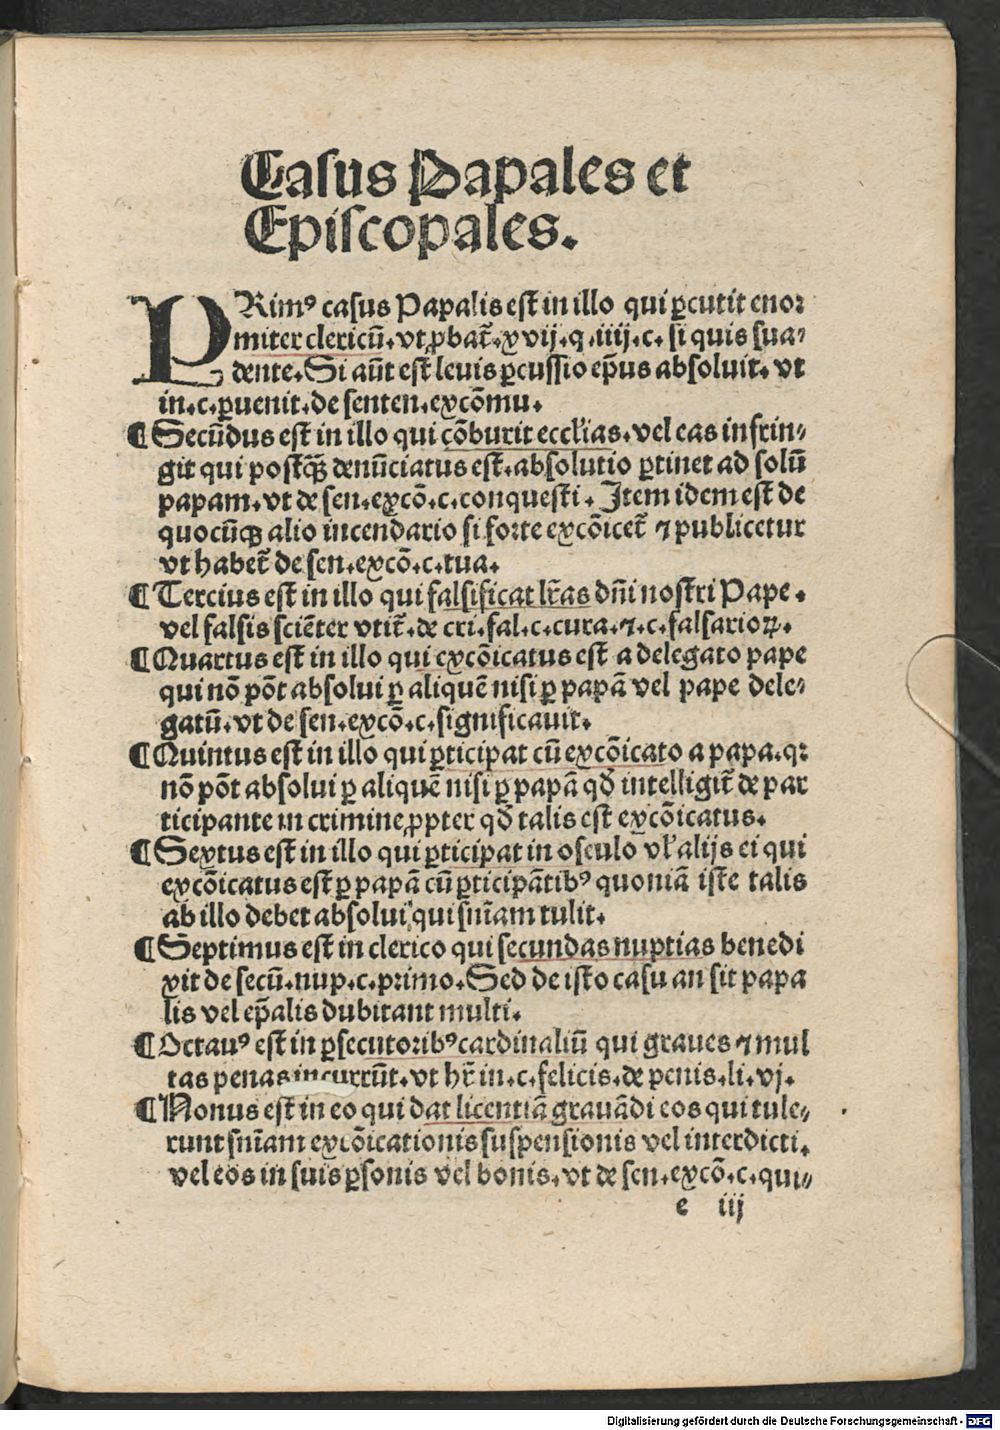 Casus Papales et
Episcopales.
PRimꝰ casus Papalis est in illo qui ꝑcutit enoꝛ
miter clericū. vt ꝓbat̄. xvij. q. iiij. c. si quis sua⸗
dente. Si aūt est leuis ꝑcussio ep̄us absoluit. vt
in. c. ꝑuenit. de senten. excōmu.
¶ Secūdus est in illo qui cōburit eccl'ias. vel eas infrin⸗
git qui postꝙ̄ denūciatus est. absolutio ꝑtinet ad solū
papam. vt de sen. excō. c. conquesti. Item idem est de
quocūqꝫ alio incendario si foꝛte excōicet̄ ⁊ publicetur
vt habet̄ de sen. excō. c. tua.
¶ Tercius est in illo qui falsificat lr̄as dn̄i nostri Pape.
vel falsis sciēter vtit̄. de cri. fal. c. cura. ⁊. c. falsarioꝝ.
¶ Quartus est in illo qui excōicatus est a delegato pape
qui nō pōt absolui ꝑ aliquē nisi ꝑ papā vel pape dele⸗
gatū. vt de sen. excō. c. significauit.
¶ Quintus est in illo qui ꝑticipat cū excōicato a papa. qꝛ
nō pōt absolui ꝑ aliquē nisi ꝑ papā qd̄ intelligit̄ de par
ticipante in crimine ꝓpter qd̄ talis est excōicatus.
¶ Sextus est in illo qui ꝑticipat in osculo vl' alijs ei qui
excōicatus est ꝑ papā cū ꝑticipātibꝰ quoniā iste talis
ab illo debet absolui qui sn̄iam tulit.
¶ Septimus est in clerico qui secundas nuptias benedi
xit de secū. nup. c. pꝛimo. Sed de isto casu an sit papa
lis vel ep̄alis dubitant multi.
¶ Octauꝰ est in ꝑsecutoꝛibꝰ cardinaliū qui graues ⁊ mul
tas penas incurrūt. vt hr̄ in. c. felicis. de penis. li. vj.
¶ Nonus est in eo qui dat licentiā grauādi eos qui tule⸗
runt sn̄iam excōicationis suspensionis vel interdicti.
vel eos in suis ꝑsonis vel bonis. vt de sen. excō. c. qui⸗
e iij
Digitalisierung gefördert durch die Deutsche Forschungsgemeinschaft - DFG